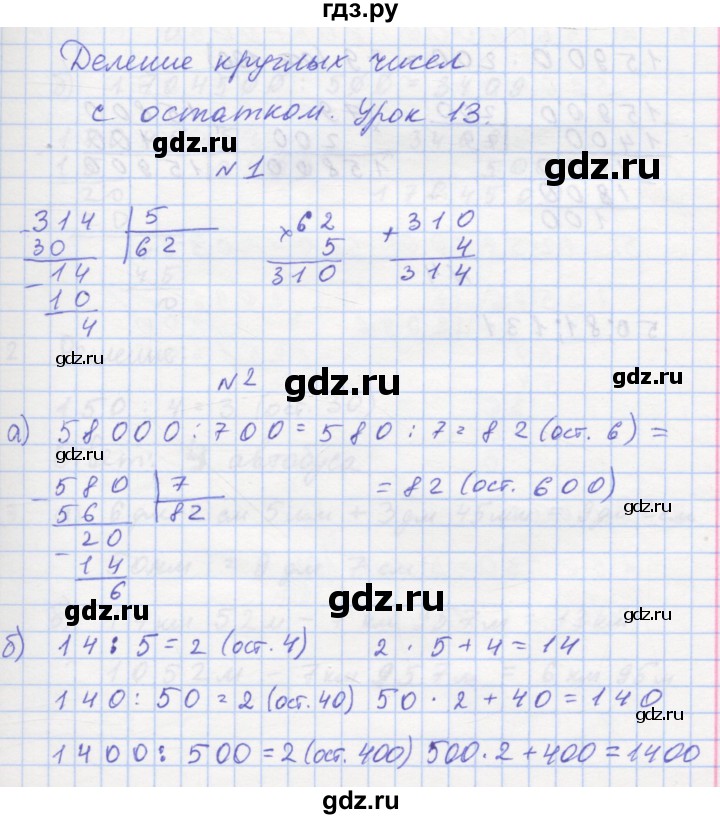 гдз.ру
Деление круглых чисел
с остатком. Урок 13.
gdz.ru
gdz.ru
№1
314 | 5
30 | 62
14
10
4
× 62
5
310
+ 310
4
314
gdz.ru
№2
gdz.ru
gdz.ru
а) 58000 : 700 = 580 : 7 = 82 (ост. 6) =
gdz.ru
= 82 (ост. 600)
580 | 7
56 | 82
20
14
6
gdz.ru
gdz.ru
gdz.ru
gdz.ru
б) 14 : 5 = 2 (ост. 4) 2 · 5 + 4 = 14
140 : 50 = 2 (ост. 40) 50 · 2 + 40 = 140
gdz.ru
gdz.ru
1400 : 500 = 2 (ост. 400) 500 · 2 + 400 = 1400
gdz.ru
gdz.ru
gdz.ru